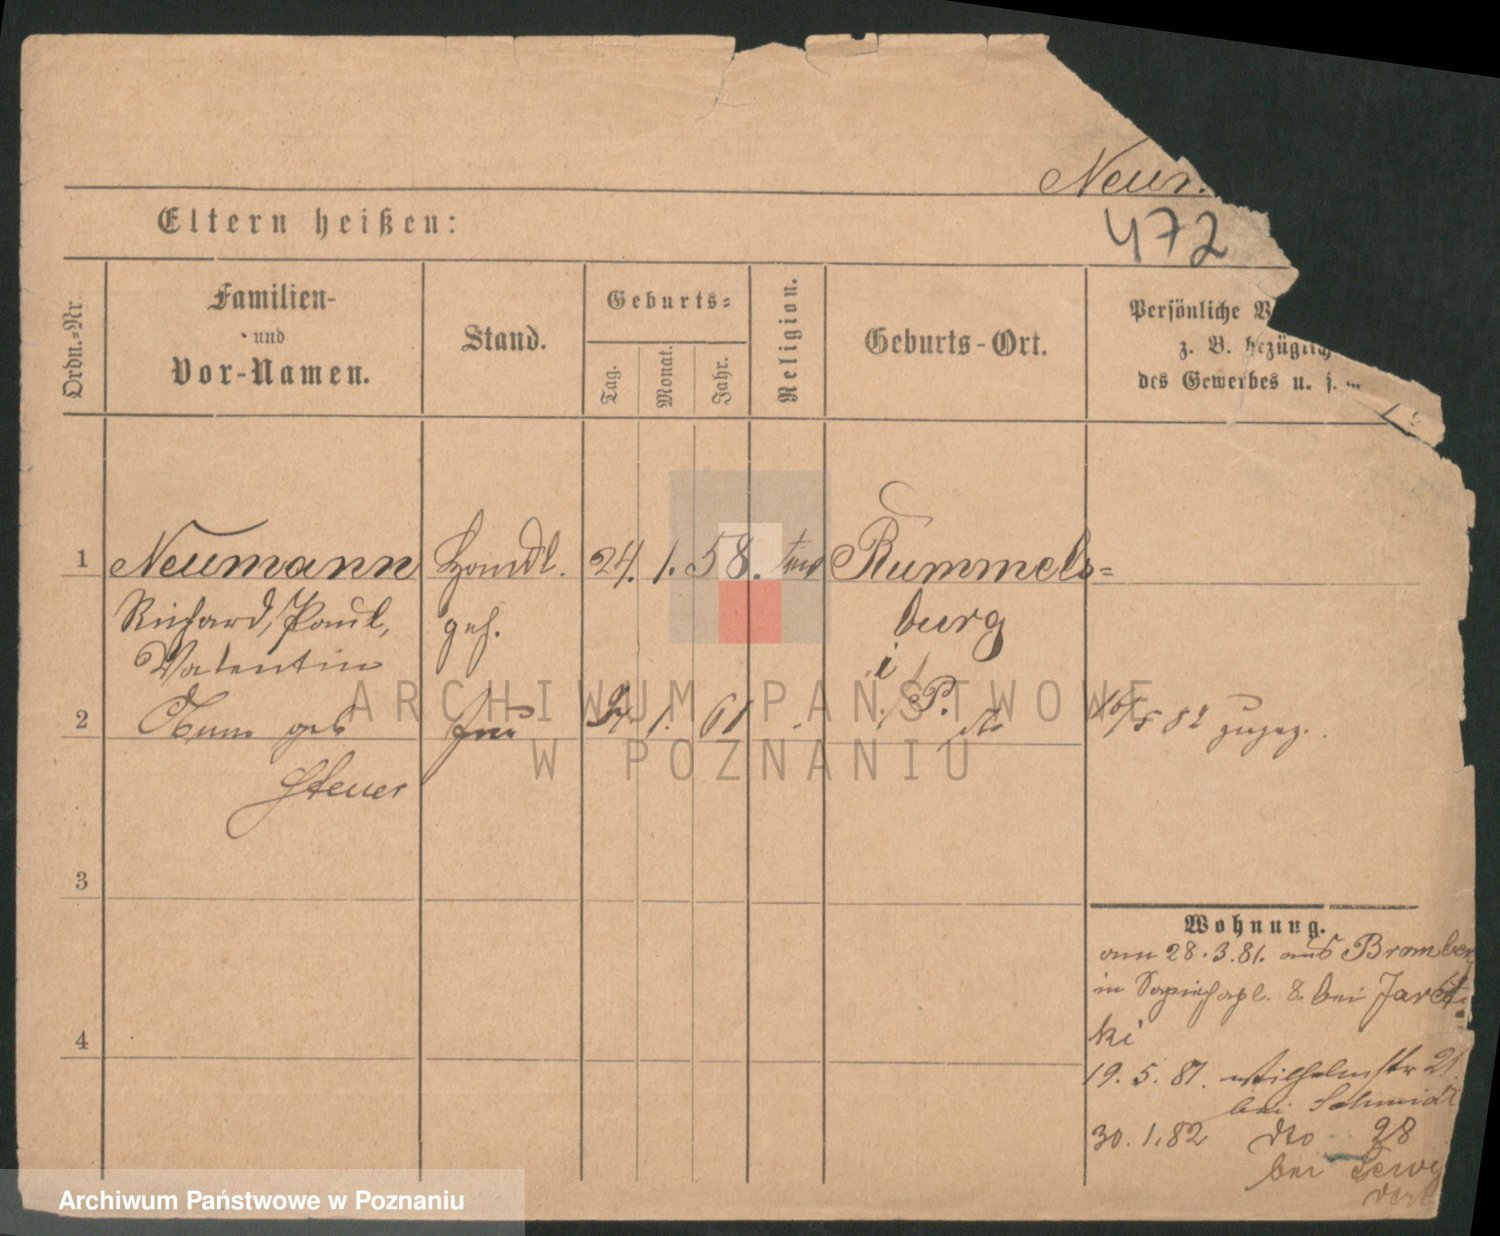 Neu
472
Eltern heißen:
Ordn.-Nr.
Familien-
und
Vor-Namen.
Stand.
Geburts-
Tag.
Monat.
Jahr.
Religion.
Geburts-Ort.
Persönliche V
z. B. bezüglich
des Gewerbes u. s.
1 Neumann Handl. 24. 1. 58. Rummels-
Richard, Paul, geh. burg
Valentin i/
2 geb 1. 61 P. dto 16/5 82 zugez.
Steuer
3
4
Wohnung.
am 28.3.81. aus Bromberg
in Sapiehapl. 8. bei Jar
ki
19. 5. 81. Wilhelmstr 21
bei Schmidt
30. 1. 82 dto 28
bei
ARCHIWUM PAŃSTWOWE
W POZNANIU
Archiwum Państwowe w Poznaniu